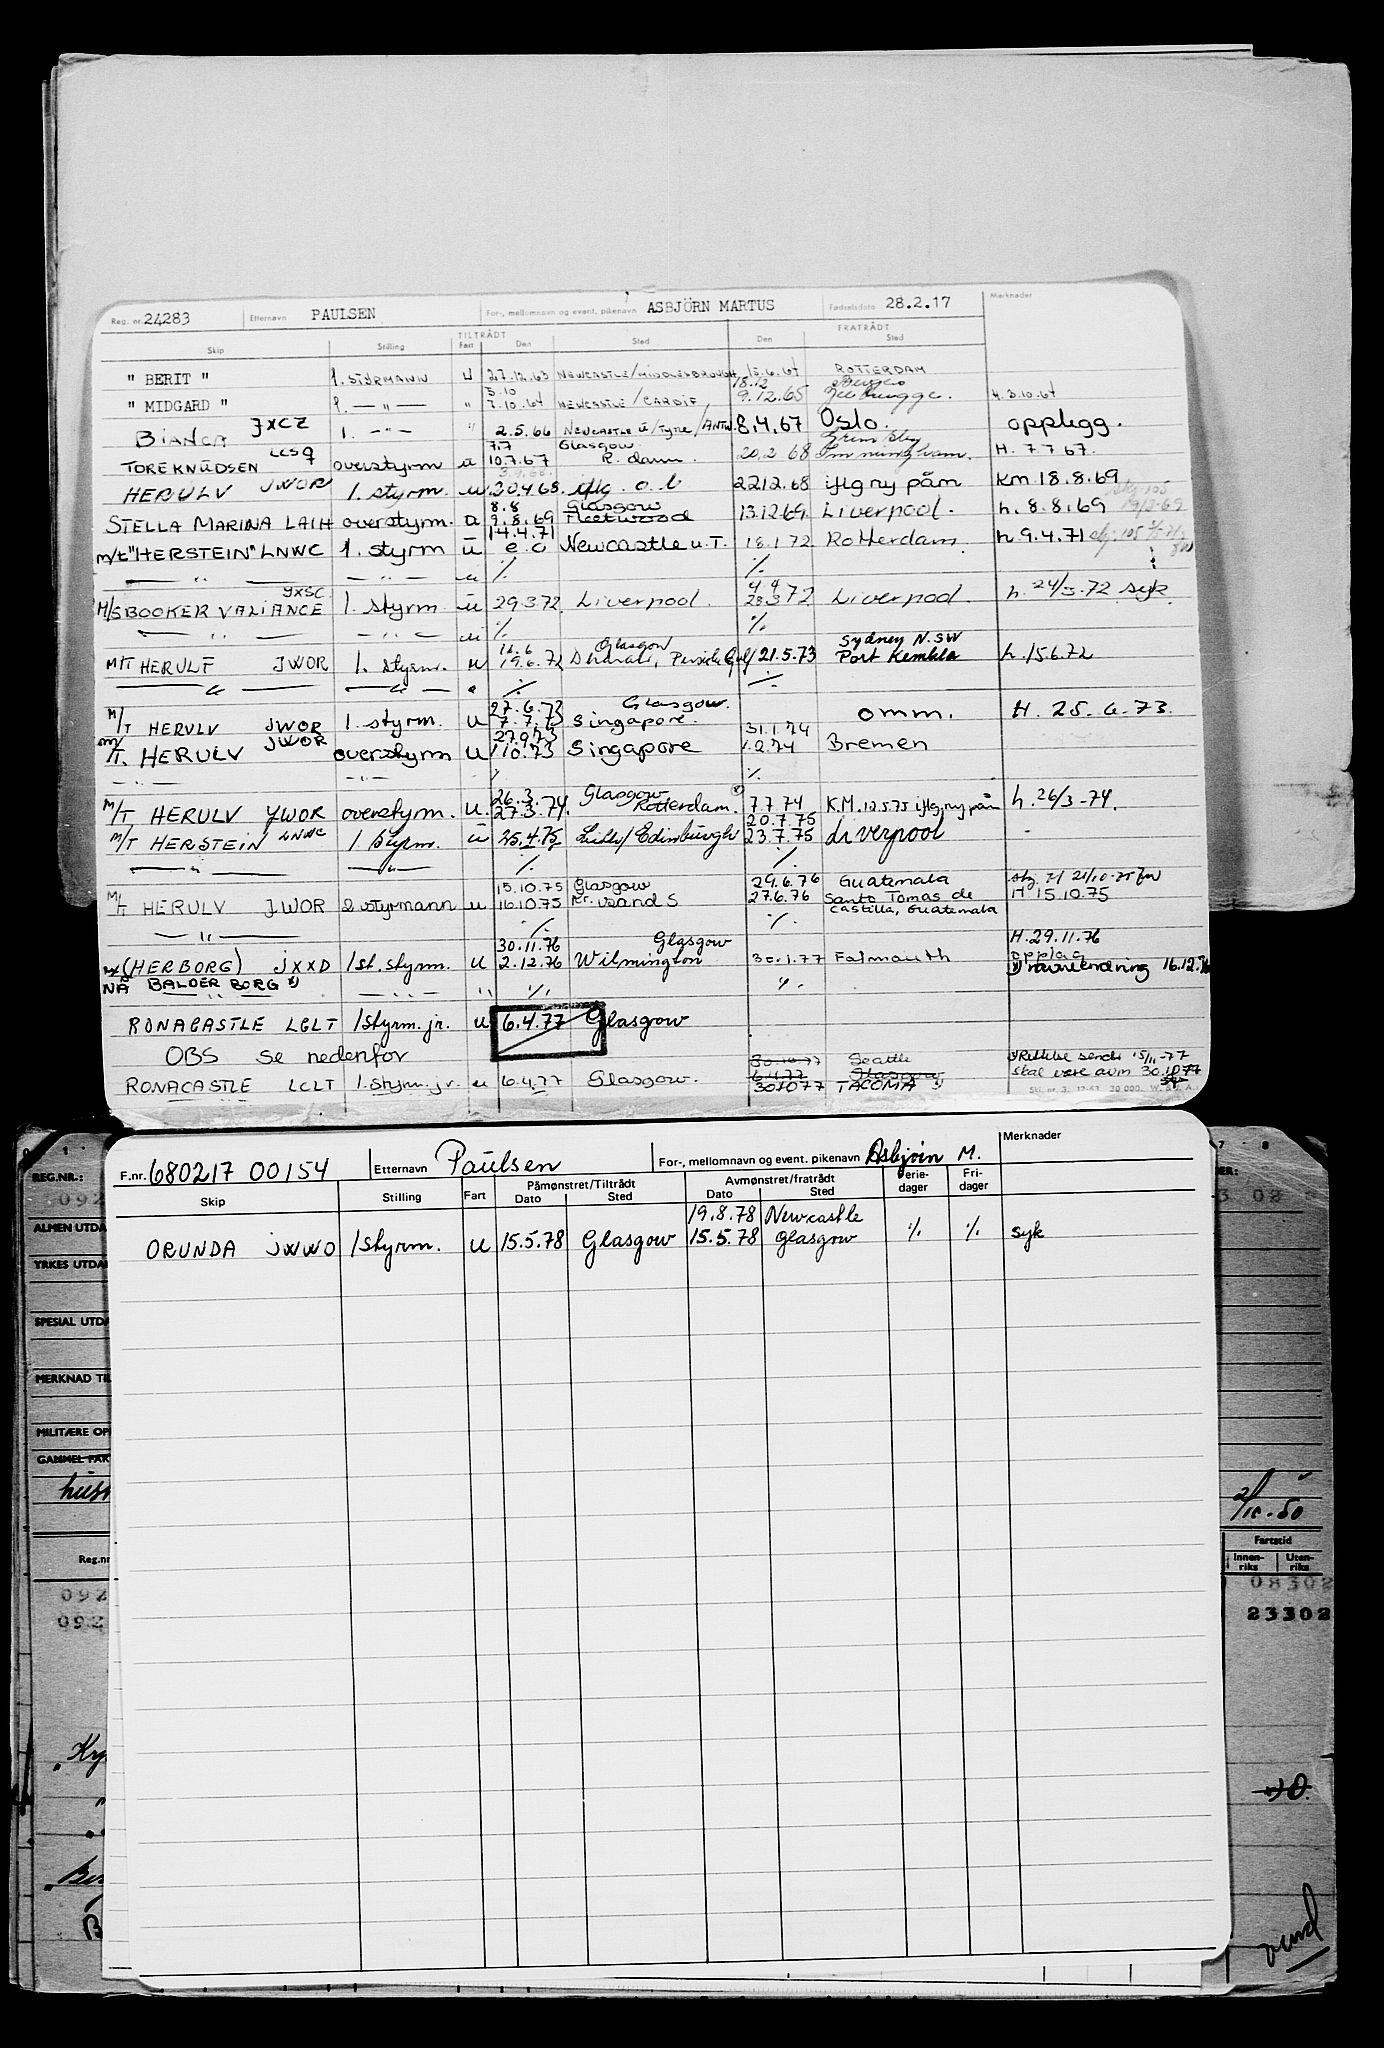 Reg. nr. 24283 Etternavn PAULSEN For-, mellomnavn og event. pikenavn ASBJÖRN MARTUS Fødselsdato 28.2.17 Merknader
TILTRÅDT FRATRÅDT
Skip Stilling Fart Den Sted Den Sted
" BERIT " 1. STYRMANN u 27.12.63 NEWCASTLE/MIDDLESBROUGH 15.6.64 ROTTERDAM
5.10 18.12
" MIDGARD " 1. — " — " 7.10.64 NEWCASTLE/CARDIF, 9.12.65 Zeebrugge. H. 3.10.64
BIANCA JXCZ 1. — " — " 2.5.66 NEWCASTLE u/TYNE/ANTW. 8.4.67 Oslo. opplegg.
7.7 Glasgow
TORE KNUDSEN LCSQ overstyrm u 10.7.67 R. dam. 20.2 68 H. 7.7 67.
HERULV JWOR 1. styrm. u 30.4.68. iflg. o. b 22.12.68 iflg ny påm km 18.8.69
8.8 Glasgow
STELLA MARINA LAIH overstyrm. u 9.8.69 Fleetwood 13.12.69. Liverpool. h. 8.8.69
14.4.71
m/t "HERSTEIN" LNWC 1. styrm u e.o Newcastle u.T. 18.1 72 Rotterdam. h 9.4.71
— " — — " — u ٪ ٪
JXSC 4 4
M/S BOOKER VALIANCE 1. styrm u 29.3.72 Liverpool. 28.3.72 Liverpool. h. 24/3-72 syk
— " — — " — u ٪ ٪
16.6 Glasgow Sydney N.SW
M/T HERULF JWOR 1. styrm. u 19.6.72 Dharan, Persile Gulf 21.5.73 Port Kembla h. 15.6.72
— " — — " — u ٪ ٪
27.6.73 Glasgow.
M/T HERULV JWOR 1. styrm. u 7.7.73 Singapore. omm. H. 25.6.73.
27.9.73 31.1.74
m/T. HERULV JWOR overstyrm u 1.10.73 Singapore 1.2.74 Bremen
— " — — " — ٪ ٪
26.3.74 Glasgow
M/T HERULV JWOR overstyrm. u. 27.3.74. Rotterdam. 7.7.74 K.M. 12.5.75 iflg ny påm h. 26/3-74.
20.7.75
M/T HERSTEIN LNWC 1 styrm. u 25.4.75 Leith/Edinburgh 23.7.75 Liverpool
— " — — " — ٪ ٪
15.10.75 Glasgow 29.6.76 Guatemala
M/T HERULV JWOR 2. styrmann u 16.10.75 Kr.sand S 27.6.76 Santo Tomas de Castilla, Guatemala H 15.10.75
— " — ٪ ٪
30.11.76 Glasgow H. 29.11.76
(HERBORG) JXXD 1st. styrm. u 2.12.76 Wilmington 30.1.77 Falmouth opplag
NÅ BALDER BORG 1) — " — " ٪ ٪ 1) navneendring 16.12.76
RONACASTLE LCLT 1 styrm. jr. u 6.4.77 Glasgow
OBS se nedenfor 30.10.77 Seattle 1) Rettelse sendt 15/11-77
6.4.77 Glasgow skal være avm 30.10.77
RONACASTLE LCLT 1. styrm. jr. u 6.4.77 Glasgow. 30.10.77 TACOMA 1)
F.nr. 680217 00154 Etternavn Paulsen For-, mellomnavn og event. pikenavn Asbjørn M. Merknader
Skip Stilling Fart Påmønstret/Tiltrådt Dato Sted Avmønstret/fratrådt Dato Sted Feriedager Fridager
19.8.78 Newcastle
ORUNDA JWWO 1 styrm. u 15.5.78 Glasgow 15.5.78 Glasgow ٪ ٪ syk
REG.NR.:
092
ALMEN UTDA
YRKES UTDA
SPESIAL UTDA
MERKNAD TIL
MILITÆRE OP
2/10-80
Fartstid
Reg.nr Innenriks Utenriks
092 08302
092 23302